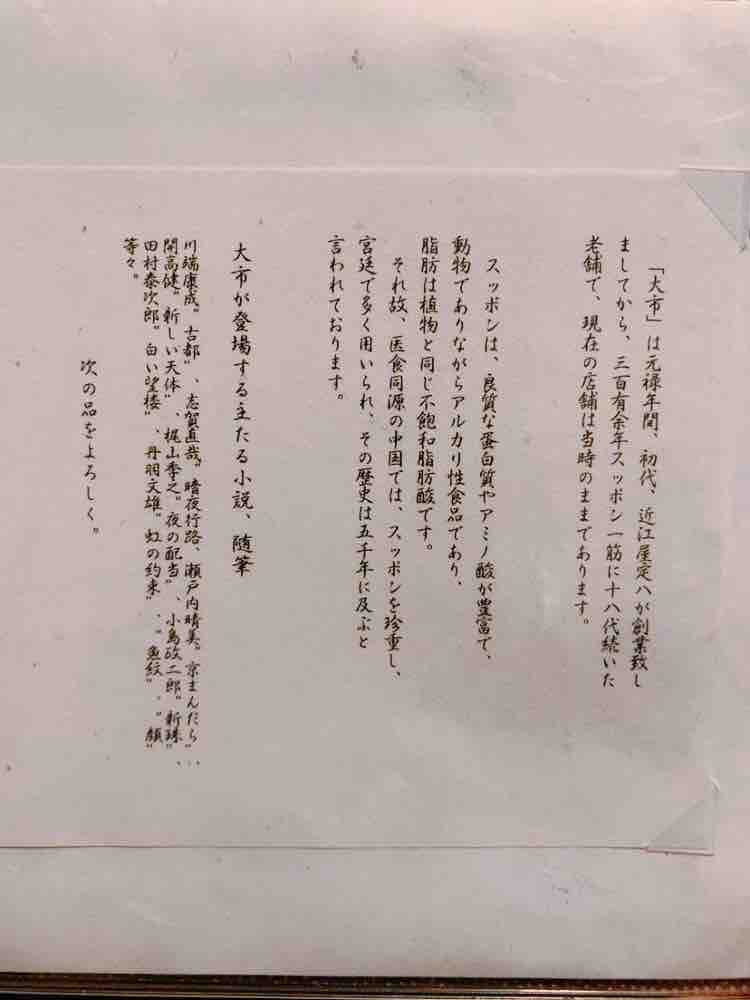 「大市」は元禄年間、初代、近江屋定八が創業致し
ましてから、三百有余年スッポン一筋に十八代続いた
老舗で、現在の店舗は当時のままであります。
スッポンは、良質な蛋白質やアミノ酸が豊富で、
動物でありながらアルカリ性食品であり、
脂肪は植物と同じ不飽和脂肪酸です。
それ故、医食同源の中国では、スッポンを珍重し、
宮廷で多く用いられ、その歴史は五千年に及ぶと
言われております。
大市が登場する主たる小説、随筆
川端康成〝古都〟、志賀直哉〝暗夜行路、瀬戸内晴美〝京まんだら〟、
開高健〝新しい天体〟、梶山季之〝夜の配当〟、小島政二郎〝新珠〟、
田村泰次郎〝白い望楼〟、丹羽文雄〝虹の約束〟、〝魚紋〟、〝顔〟
等々。
次の品をよろしく。